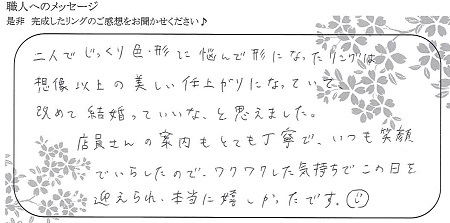 職人へのメッセージ
是非 完成したリングのご感想をお聞かせください♪
二人でじっくり色・形に悩んで形になったリングは
想像以上の美しい仕上がりになっていて、
改めて結婚っていいな、と思えました。
店員さんの案内もとても丁寧で、いつも笑顔
でいらしたので、ワクワクした気持ちでこの日を
迎えられ、本当に嬉しかったです。